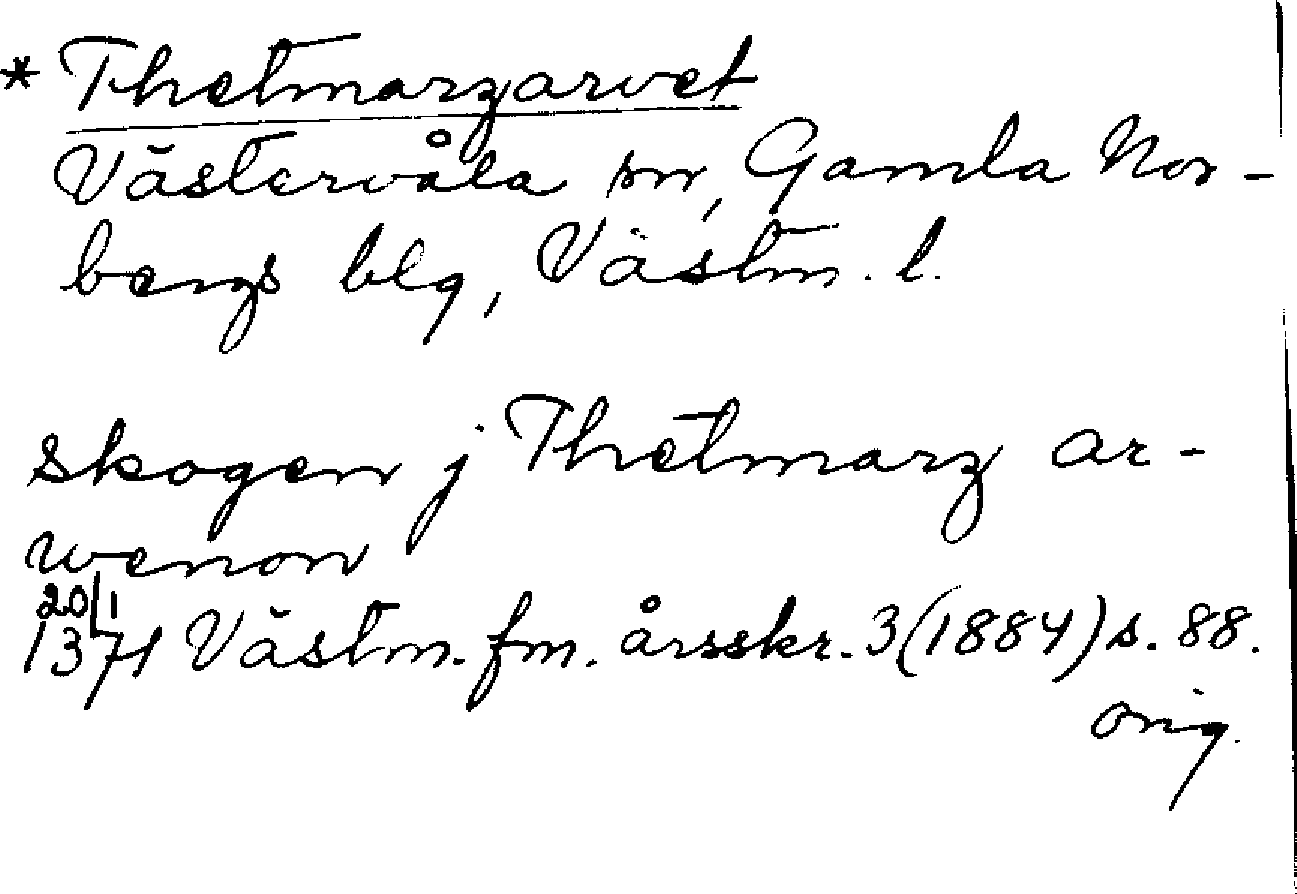 * Thetmarzarvet
Västervåla sn, Gamla Nor-
bergs blg, Västm. l.
skogen j Thetmarz ar-
wenom
20/1
1371 Västm. fm. årsskr. 3 (1884) s. 88.
orig.